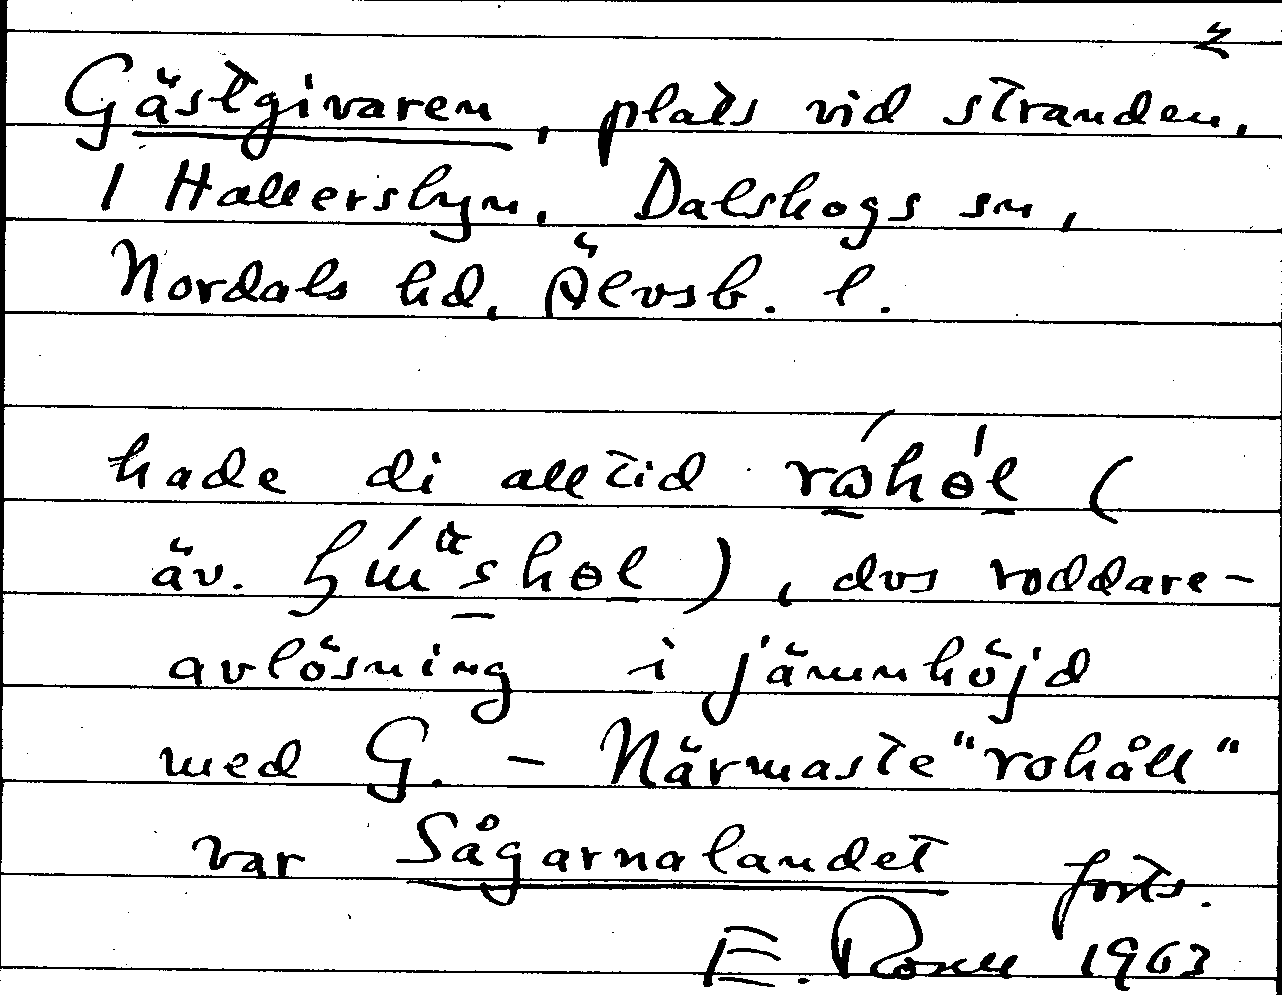 2
Gästgivaren, plats vid stranden,
1 Hallersbyn, Dalskogs sn,
Nordals hd, Älvsb. l.
hade di alltid (
äv. ), dvs roddare-
avlösning i jämnhöjd
med G. - Närmaste "rohåll"
var Sågarnalandet forts.
E. 1963